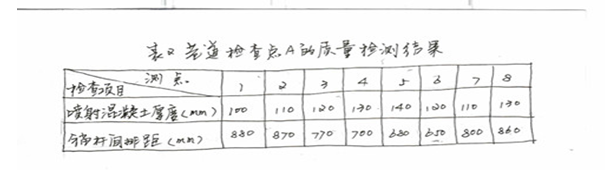 表2 巷道检查点A的质量检测结果
检查项目 测点 1 2 3 4 5 6 7 8
喷射混凝土厚度(mm) 100 110 120 130 140 120 110 130
锚杆间排距(mm) 880 870 770 700 680 650 800 860